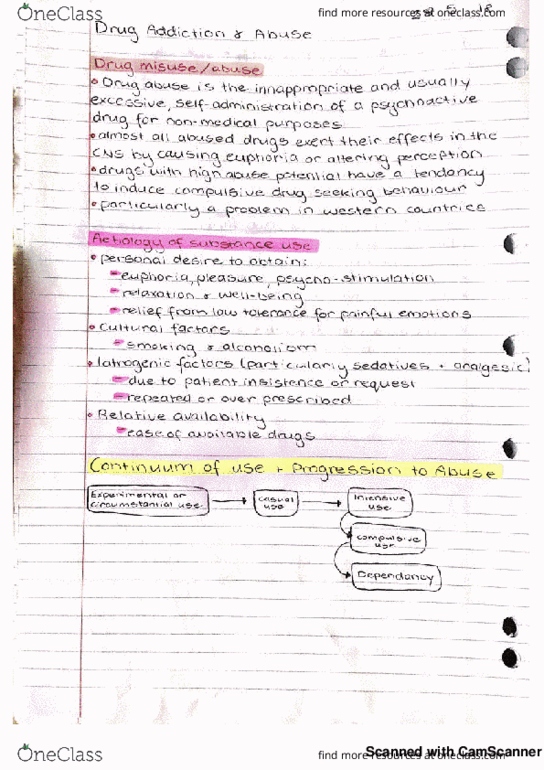 OneClass
find more resources at oneclass.com
Drug Addiction & Abuse
Drug misuse/abuse
• Drug abuse is the innappropriate and usually
excessive, self-administration of a psychoactive
drug for non-medical purposes
• almost all abused drugs exert their effects in the
CNS by causing euphoria or altering perception
• drugs with high abuse potential have a tendancy
to induce compulsive drug seeking behaviour
• particularly a problem in western countries
Aetiology of substance use
• personal desire to obtain:
- euphoria, pleasure, psycho-stimulation
- relaxation & well-being
- relief from low tolerance for painful emotions
• Cultural factors
- smoking & alcoholism
• Iatrogenic factors (particularly sedatives + analgesic)
- due to patient insistence or request
- repeated or over prescribed
• Relative availability
- ease of available drugs
Continuum of use + Progression to Abuse
Experimental or
circumstantial use
casual
use
Intensive
use
compulsive
use
Dependancy
OneClass
find more resources at oneclass.com
Scanned with CamScanner